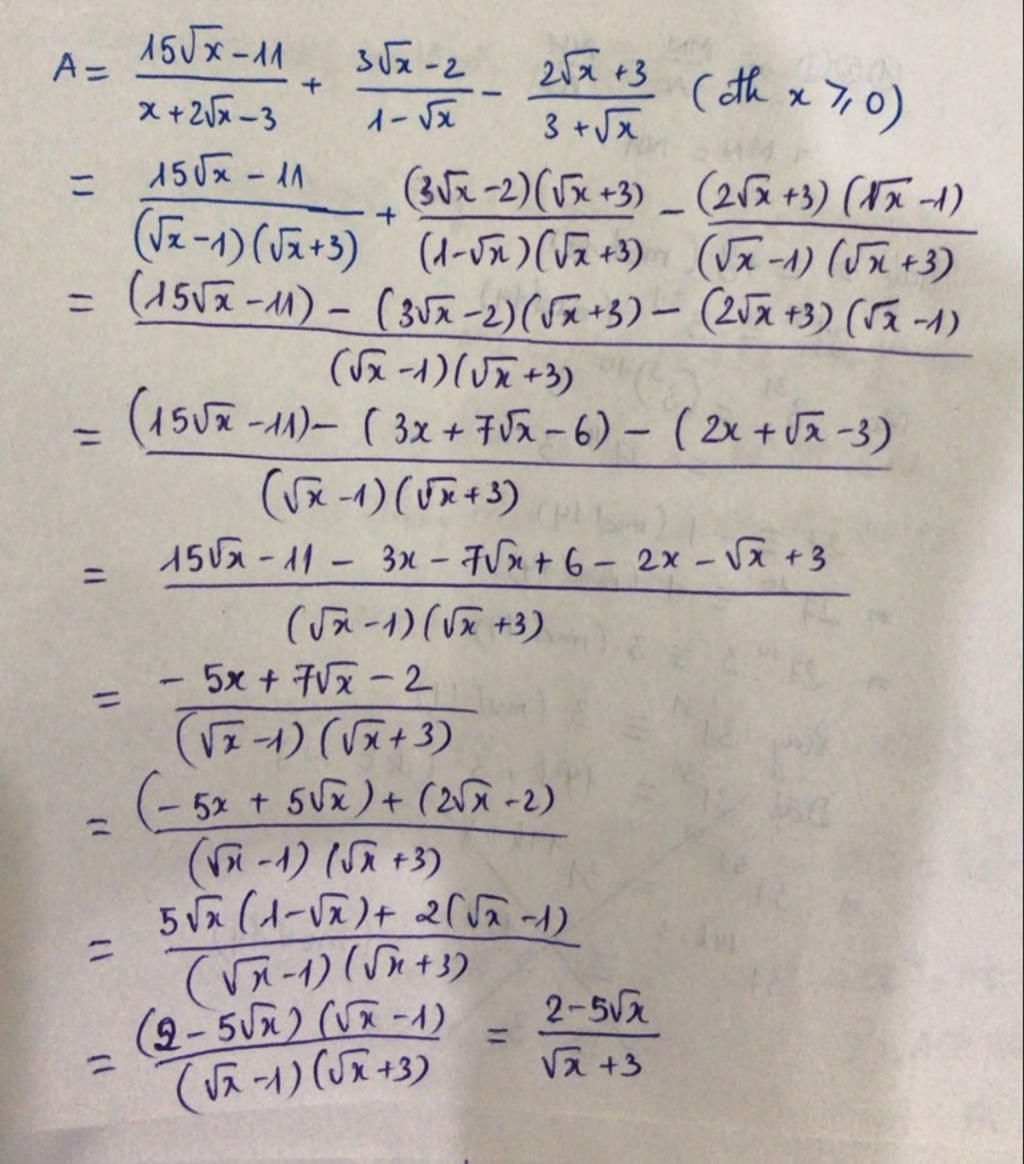 A = (15√x - 11)/(x + 2√x - 3) + (3√x - 2)/(1 - √x) - (2√x + 3)/(3 + √x) (đk x ⩾ 0)
= (15√x - 11)/((√x - 1)(√x + 3)) + ((3√x - 2)(√x + 3))/((1 - √x)(√x + 3)) - ((2√x + 3)(√x - 1))/((√x - 1)(√x + 3))
= ((15√x - 11) - (3√x - 2)(√x + 3) - (2√x + 3)(√x - 1))/((√x - 1)(√x + 3))
= ((15√x - 11) - (3x + 7√x - 6) - (2x + √x - 3))/((√x - 1)(√x + 3))
= (15√x - 11 - 3x - 7√x + 6 - 2x - √x + 3)/((√x - 1)(√x + 3))
= (- 5x + 7√x - 2)/((√x - 1)(√x + 3))
= ((- 5x + 5√x) + (2√x - 2))/((√x - 1)(√x + 3))
= (5√x(1 - √x) + 2(√x - 1))/((√x - 1)(√x + 3))
= ((2 - 5√x)(√x - 1))/((√x - 1)(√x + 3)) = (2 - 5√x)/(√x + 3)